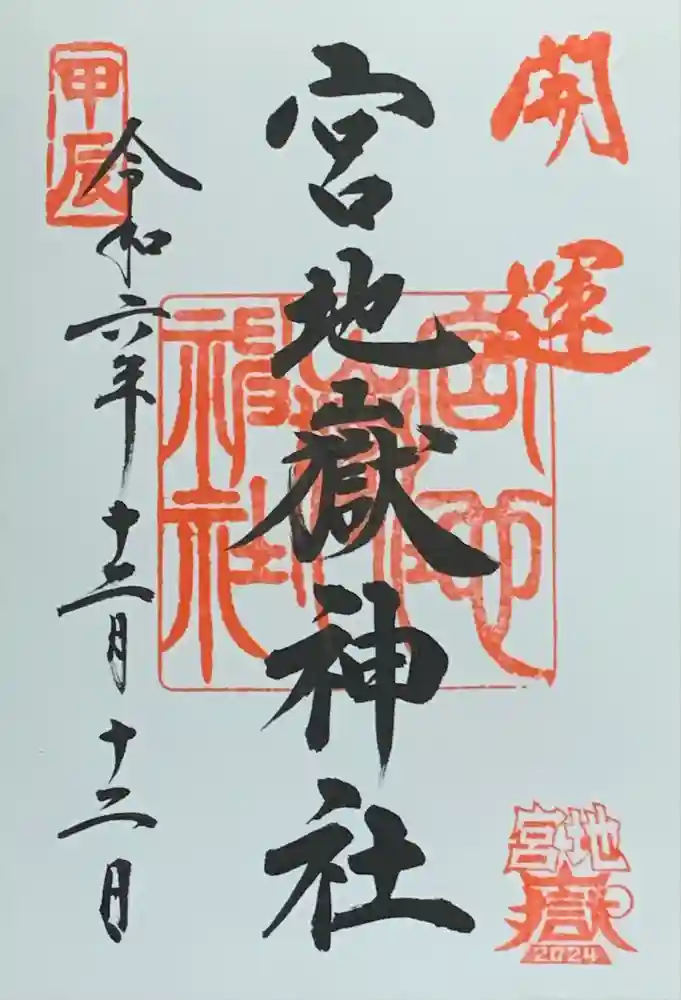 開運
宮地嶽神社
宮地嶽神社
甲辰
令和六年十二月十二日
宮地嶽
2024